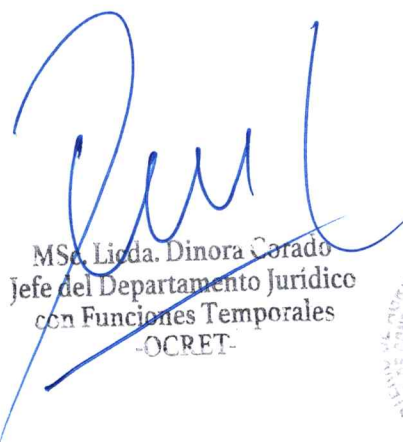 MSc. Licda. Dinora Corado
Jefe del Departamento Jurídico
con Funciones Temporales
-OCRET-